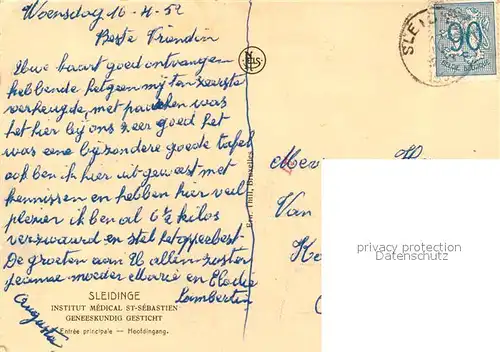 Woensdag 16-4-52
Beste Vriendin
Uwe kaart goed ontvangen
hebbende hetgeen mij ten zeerste
verheugde, met paschen was
het hier bij ons zeer goed het
was eene bijzondere goede tafel
ook ben ik hier uit geweest met
kennissen en hebben hier veel
plezier ik ben al 6½ kilos
verzwaard en stel het opperbest
De groeten aan U allen zusters
Jeanne moeder Marie en Elodie
Lambertin
Augusta
SLEIDINGE
INSTITUT MÉDICAL ST-SÉBASTIEN
GENEESKUNDIG GESTICHT
Entrée principale — Hoofdingang.
NELS
Ern. Thill, Bruxelles
SLEI
90
Mev
H
Van
protected by copyright